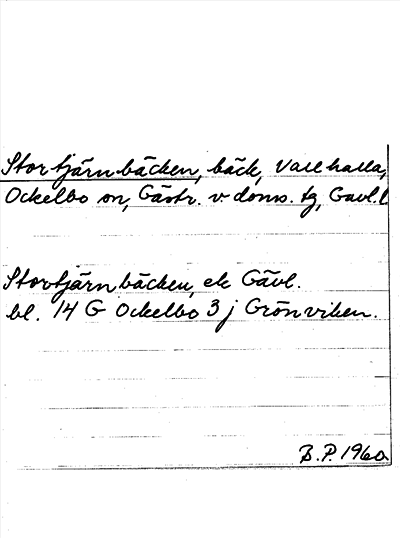 Stortjärnbäcken, bäck, Vallhalla,
Ockelbo sn, Gästr. v. doms. tg, Gävl. l
Stortjärnbäcken, ek Gävl.
bl. 14 G Ockelbo 3 j Grönviken.
B.P. 1960